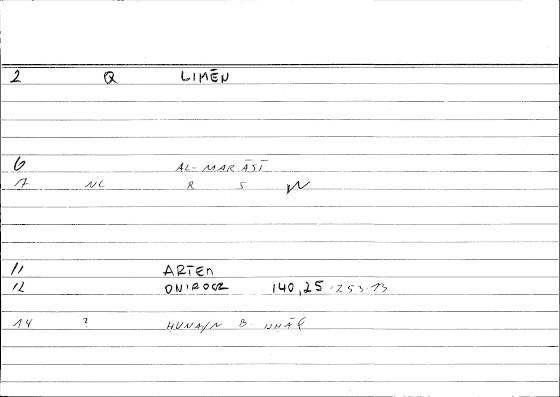 2 Q LIMĒN
6 AL-MARĀSĪ
7 R S
11 ARTEM
12 ONIROCR 140,25-253.13
14 ? HUNAYN B ISHĀQ